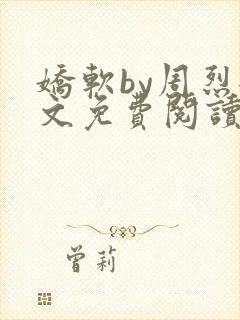 嬌軟by周烈
文免費閱讀
曾莉